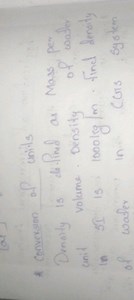 * Conversion of units
Density is defined as Mass per
unit volume. Density of water
in SI is 1000 kg/m. find density
of water in CGS system